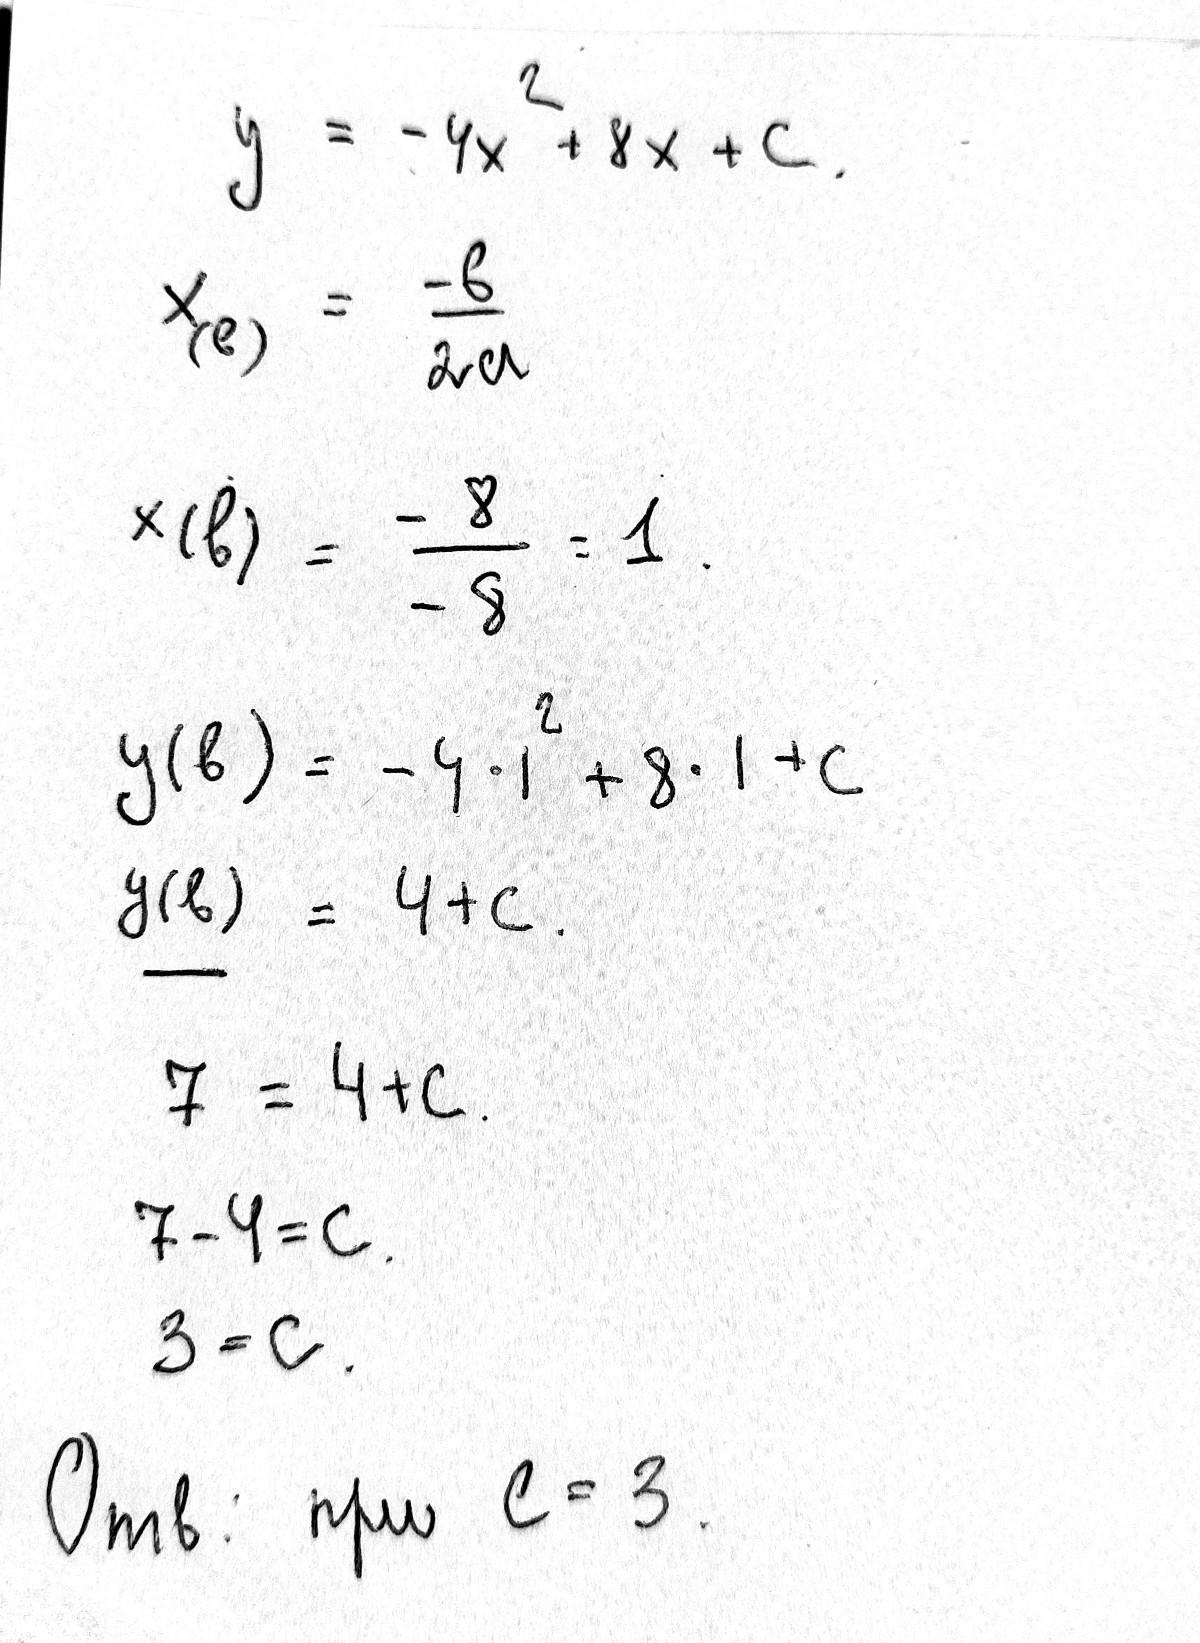 y = -4x² + 8x + c.
x(в) = -в/2a
x(в) = -8/-8 = 1.
y(в) = -4·1² + 8·1 + c
y(в) = 4+c.
7 = 4+c.
7-4=c.
3=c.
Отв: при c = 3.